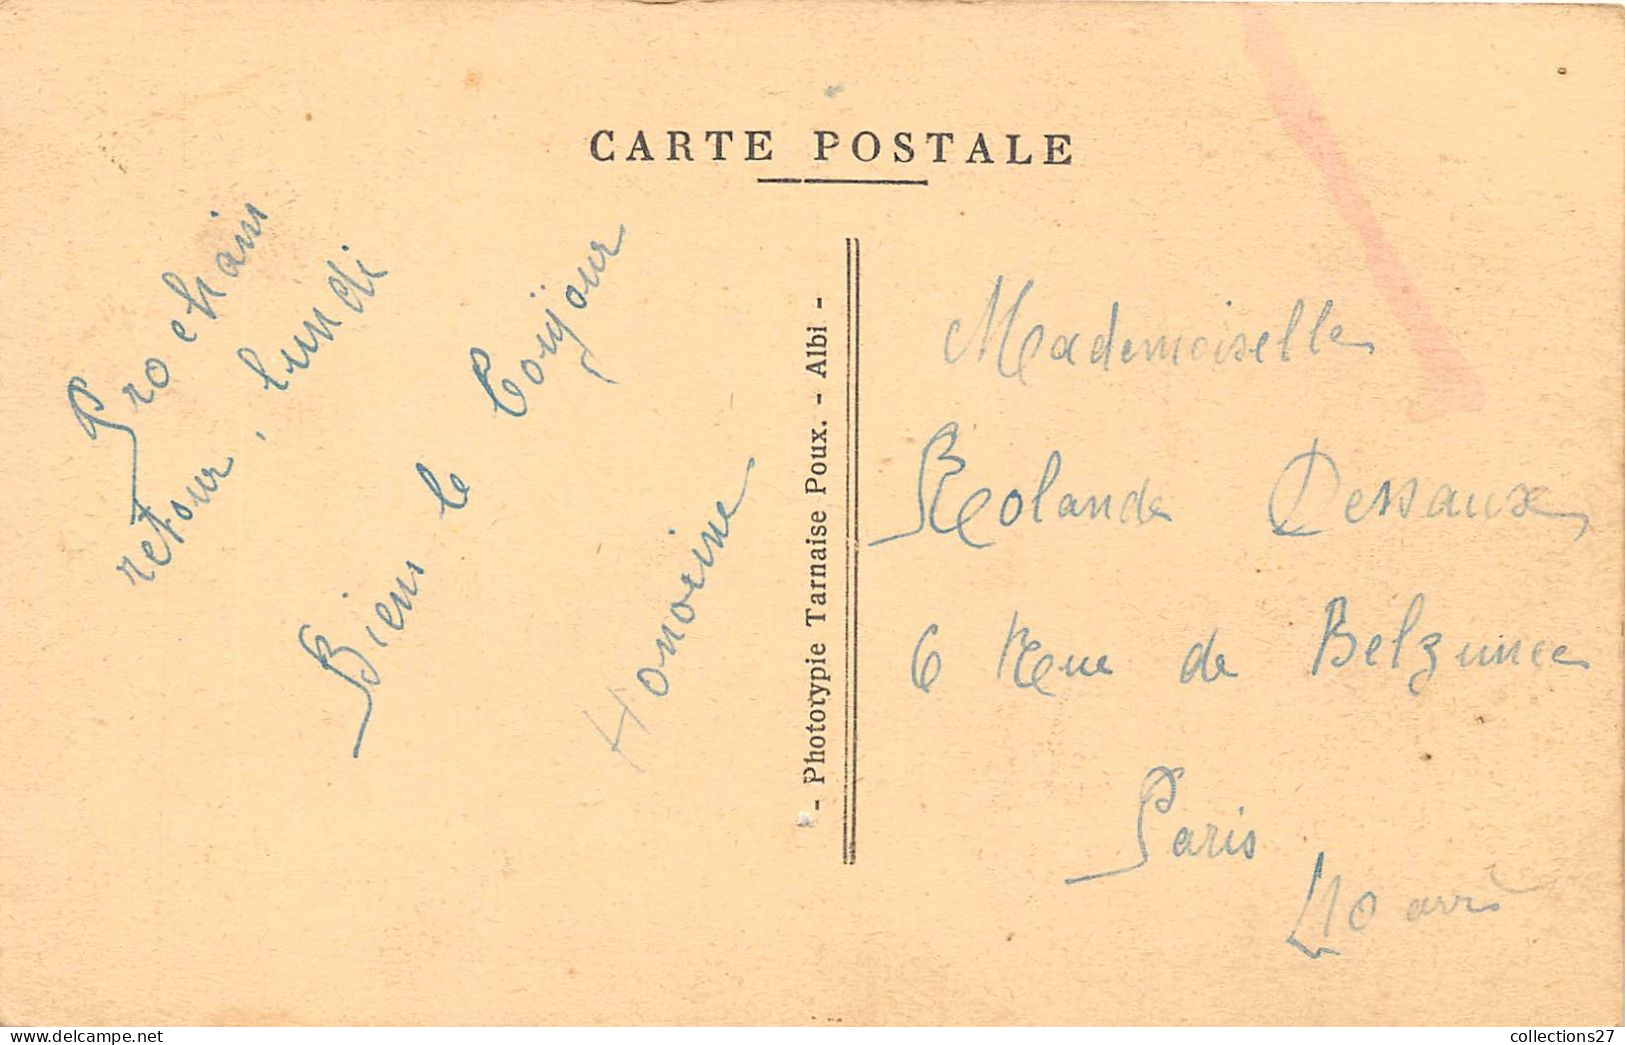 CARTE POSTALE
Prochain
retour, lundi
Bien le
Toujour
Honorine
- Photorypie Tarnaise Poux. - Albi -
Mademoiselle
Rolande Dessaux
6 Rue de Belzunce
Paris
10 arrº
collections27